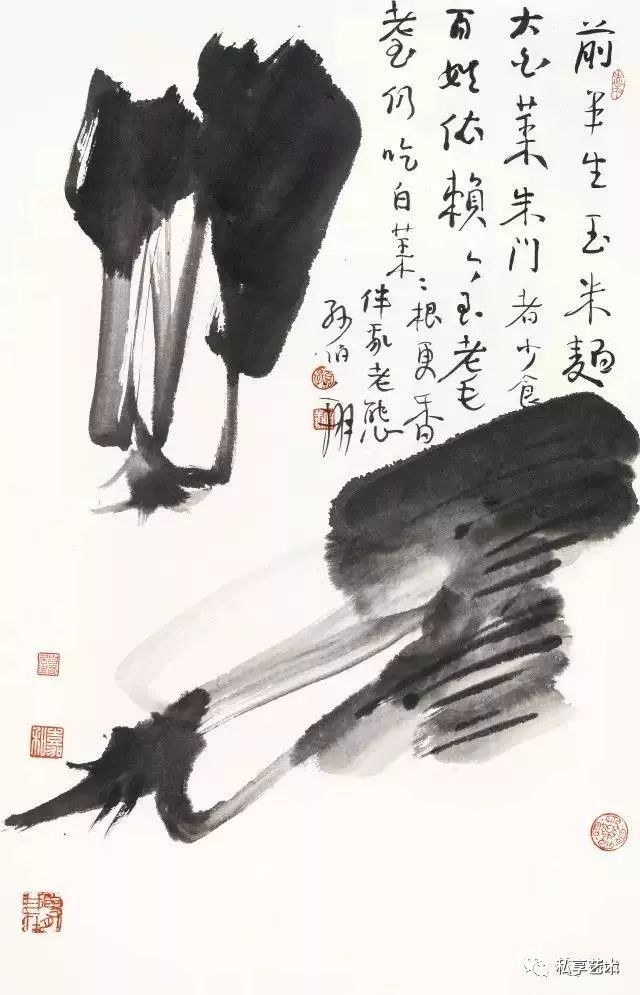 前半生玉米麵
大白菜朱门者少食
百姓依赖今至老毛
老至仍吃白菜
根更香
伴我老态
孙伯翔
私享艺术